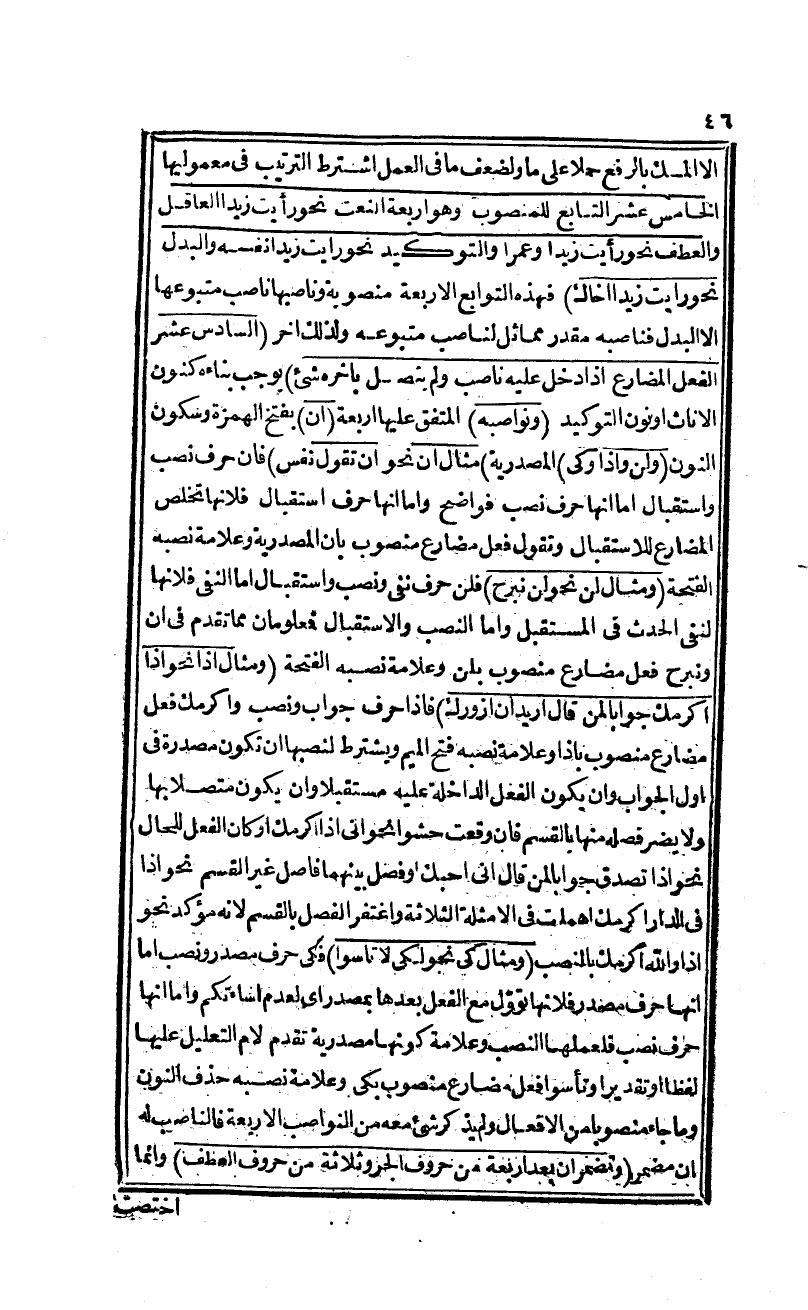 ٤٦
الا المسك بالرفع حملا على ما ولضعف ما فى العمل اشترط الترتيب فى معموليها
الخامس عشر التابع للمنصوب وهو اربعة النعت نحو رأيت زيدا العاقل
والعطف نحو رأيت زيدا وعمرا والتوكيد نحو رايت زيدا نفسه والبدل
نحو رايت زيدا اخاك) فهذه التوابع الاربعة منصوبة وناصبها ناصب متبوعها
الا البدل فناصبه مقدر مماثل لناصب متبوعه ولذلك اخر (السادس عشر
الفعل المضارع اذا دخل عليه ناصب ولم يتصل باخره شئ) يوجب بناءه كنون
الاناث او نون التوكيد (ونواصبه) المتفق عليها اربعة (ان) بفتح الهمزة وسكون
النون (ولن واذا وكى) المصدرية (مثال ان نحو ان تقول نفس) فان حرف نصب
واستقبال اما انها حرف نصب فواضح واما انها حرف استقبال فلانها تخلص
المضارع للاستقبال وتقول فعل مضارع منصوب بان المصدرية وعلامة نصبه
الفتحة (ومثال لن نحو لن نبرح) فلن حرف نفى ونصب واستقبال اما النفى فلانها
لنفى الحدث فى المستقبل واما النصب والاستقبال فمعلومان مما تقدم فى ان
ونبرح فعل مضارع منصوب بلن وعلامة نصبه الفتحة (ومثال اذا نحو اذا
اكرمك جوابا لمن قال اريد ان ازورك) فاذا حرف جواب ونصب واكرمك فعل
مضارع منصوب باذا وعلامة نصبه فتح الميم ويشترط لنصبها ان تكون مصدرة فى
اول الجواب وان يكون الفعل الداخلة عليه مستقبلا وان يكون متصلا بها
ولا يضر فصله منها بالقسم فان وقعت حشوا نحو انى اذا اكرمك او كان الفعل للحال
نحو اذا تصدق جوابا لمن قال انى احبك او فصل بينهما فاصل غير القسم نحو اذا
فى الدار اكرمك اهملت فى الامثلة الثلاثة واغتفر الفصل بالقسم لانه مؤكد نحو
اذا والله اكرمك بالنصب (ومثال كى نحو لكى لا تاسوا) فكى حرف مصدر ونصب اما
انها حرف مصدر فلانها تؤول مع الفعل بعدها بمصدر اى لعدم اساءتكم واما انها
حرف نصب فلعملها النصب وعلامة كونها مصدرية تقدم لام التعليل عليها
لفظا او تقديرا وتأسوا فعل مضارع منصوب بكى وعلامة نصبه حذف النون
وما جاء منصوبا من الافعال ولم يذكر شئ معه من النواصب الاربعة فالناصب له
ان مضمر (وتضمر ان بعد اربعة من حروف الجر وثلاثة من حروف العطف) وانما
اختصت